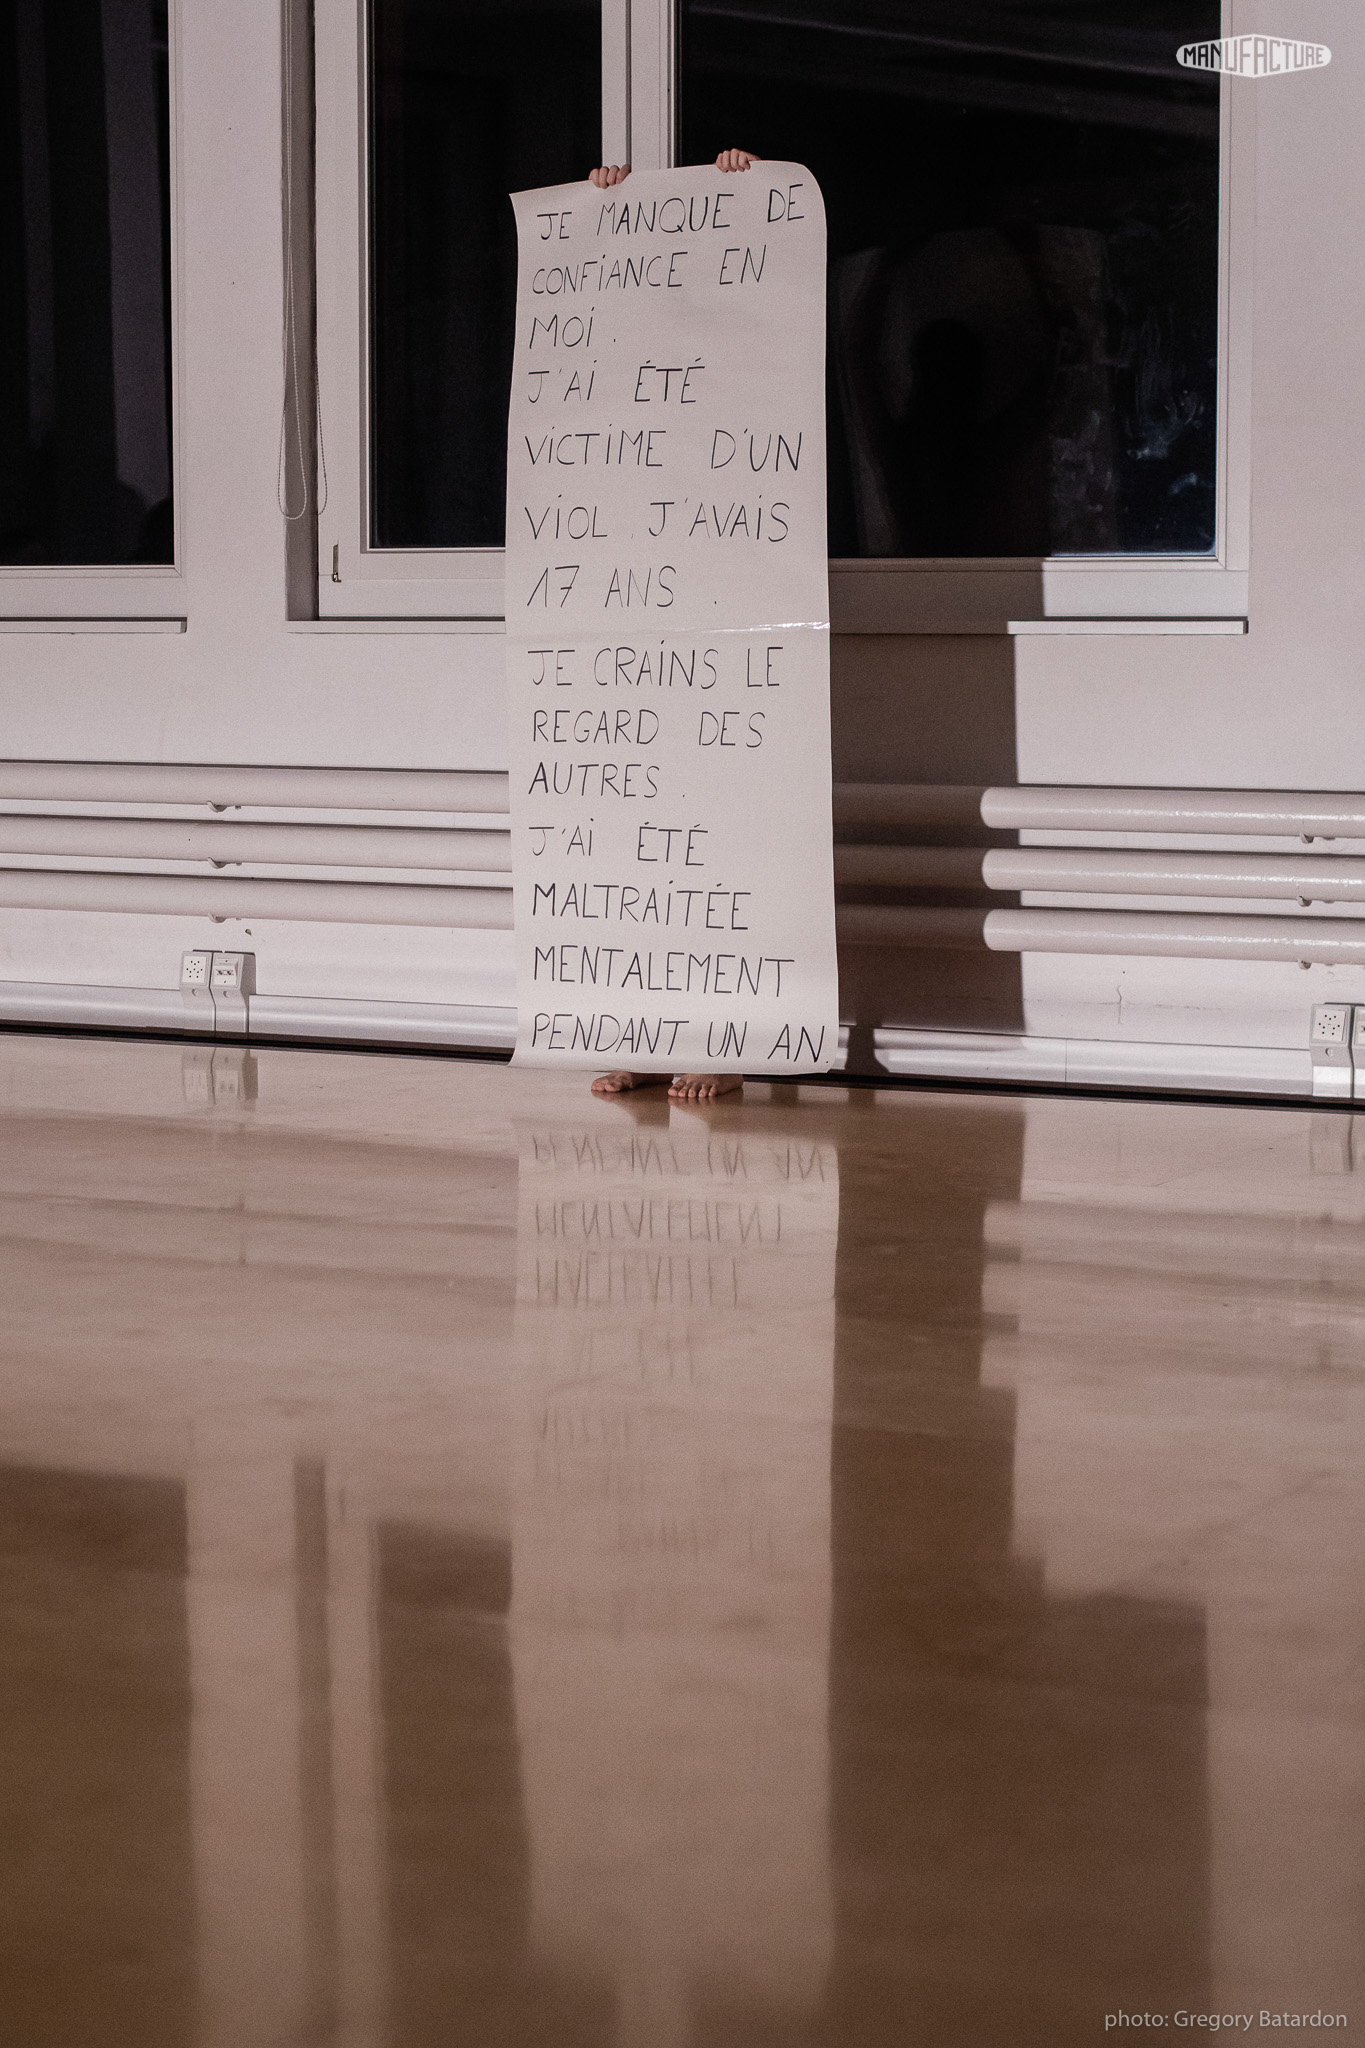 MANUFACTURE
JE MANQUE DE
CONFiANCE EN
MOi.
J'Ai ÉTÉ
ViCTiME D'UN
ViOL. J'AVAiS
17 ANS.
JE CRAiNS LE
REGARD DES
AUTRES.
J'Ai ÉTÉ
MALTRAiTÉE
MENTALEMENT
PENDANT UN AN.
photo: Gregory Batardon